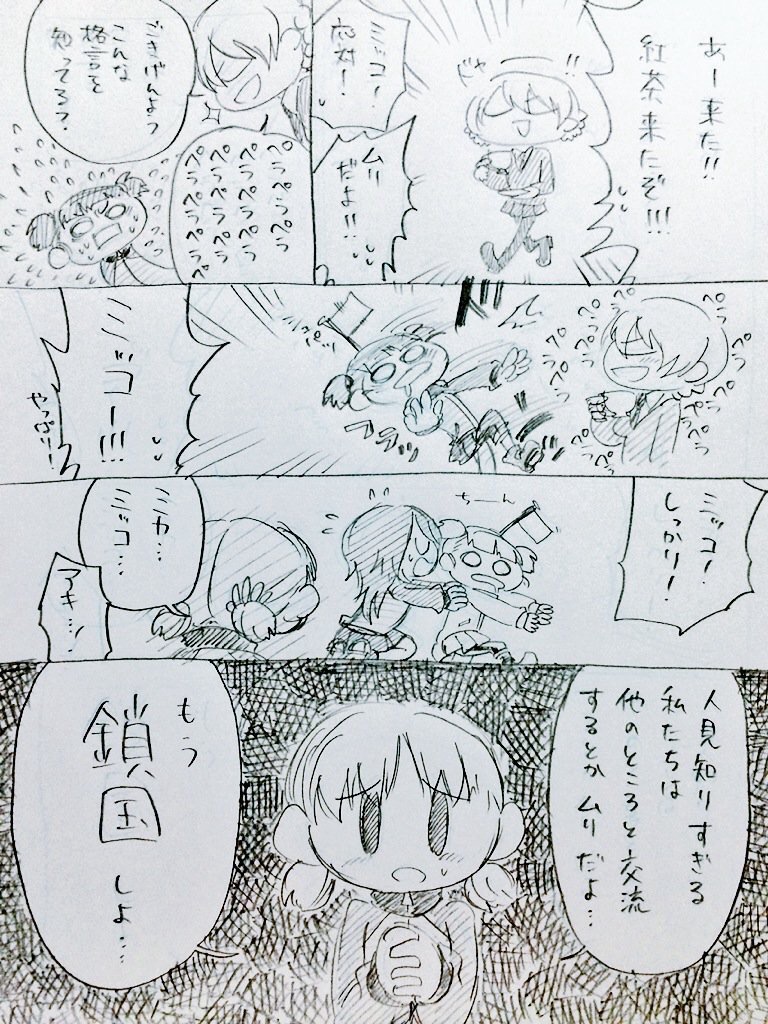 あー来た!!
紅茶来たぞ!!!
!!
ドヤ
ミッコ!
応対!
ムリ
だよ!!
ごきげんよう
こんな
格言を
知ってる?
ペラペラペラ
ペラペラペラ
ペラペラペラ
ペラペラペラ
ペラペラ
ペラペラ
ペラペラ
ペラペラ
ペラペラ
ミッコー!!!
やっぱりー!
ミッコ!
しっかり!
ちーん
ミカ…
ミッコ…
アキ…!
人見知りすぎる
私たちは
他のところと交流
するとか ムリ だよ…
もう
鎖国
しよ…